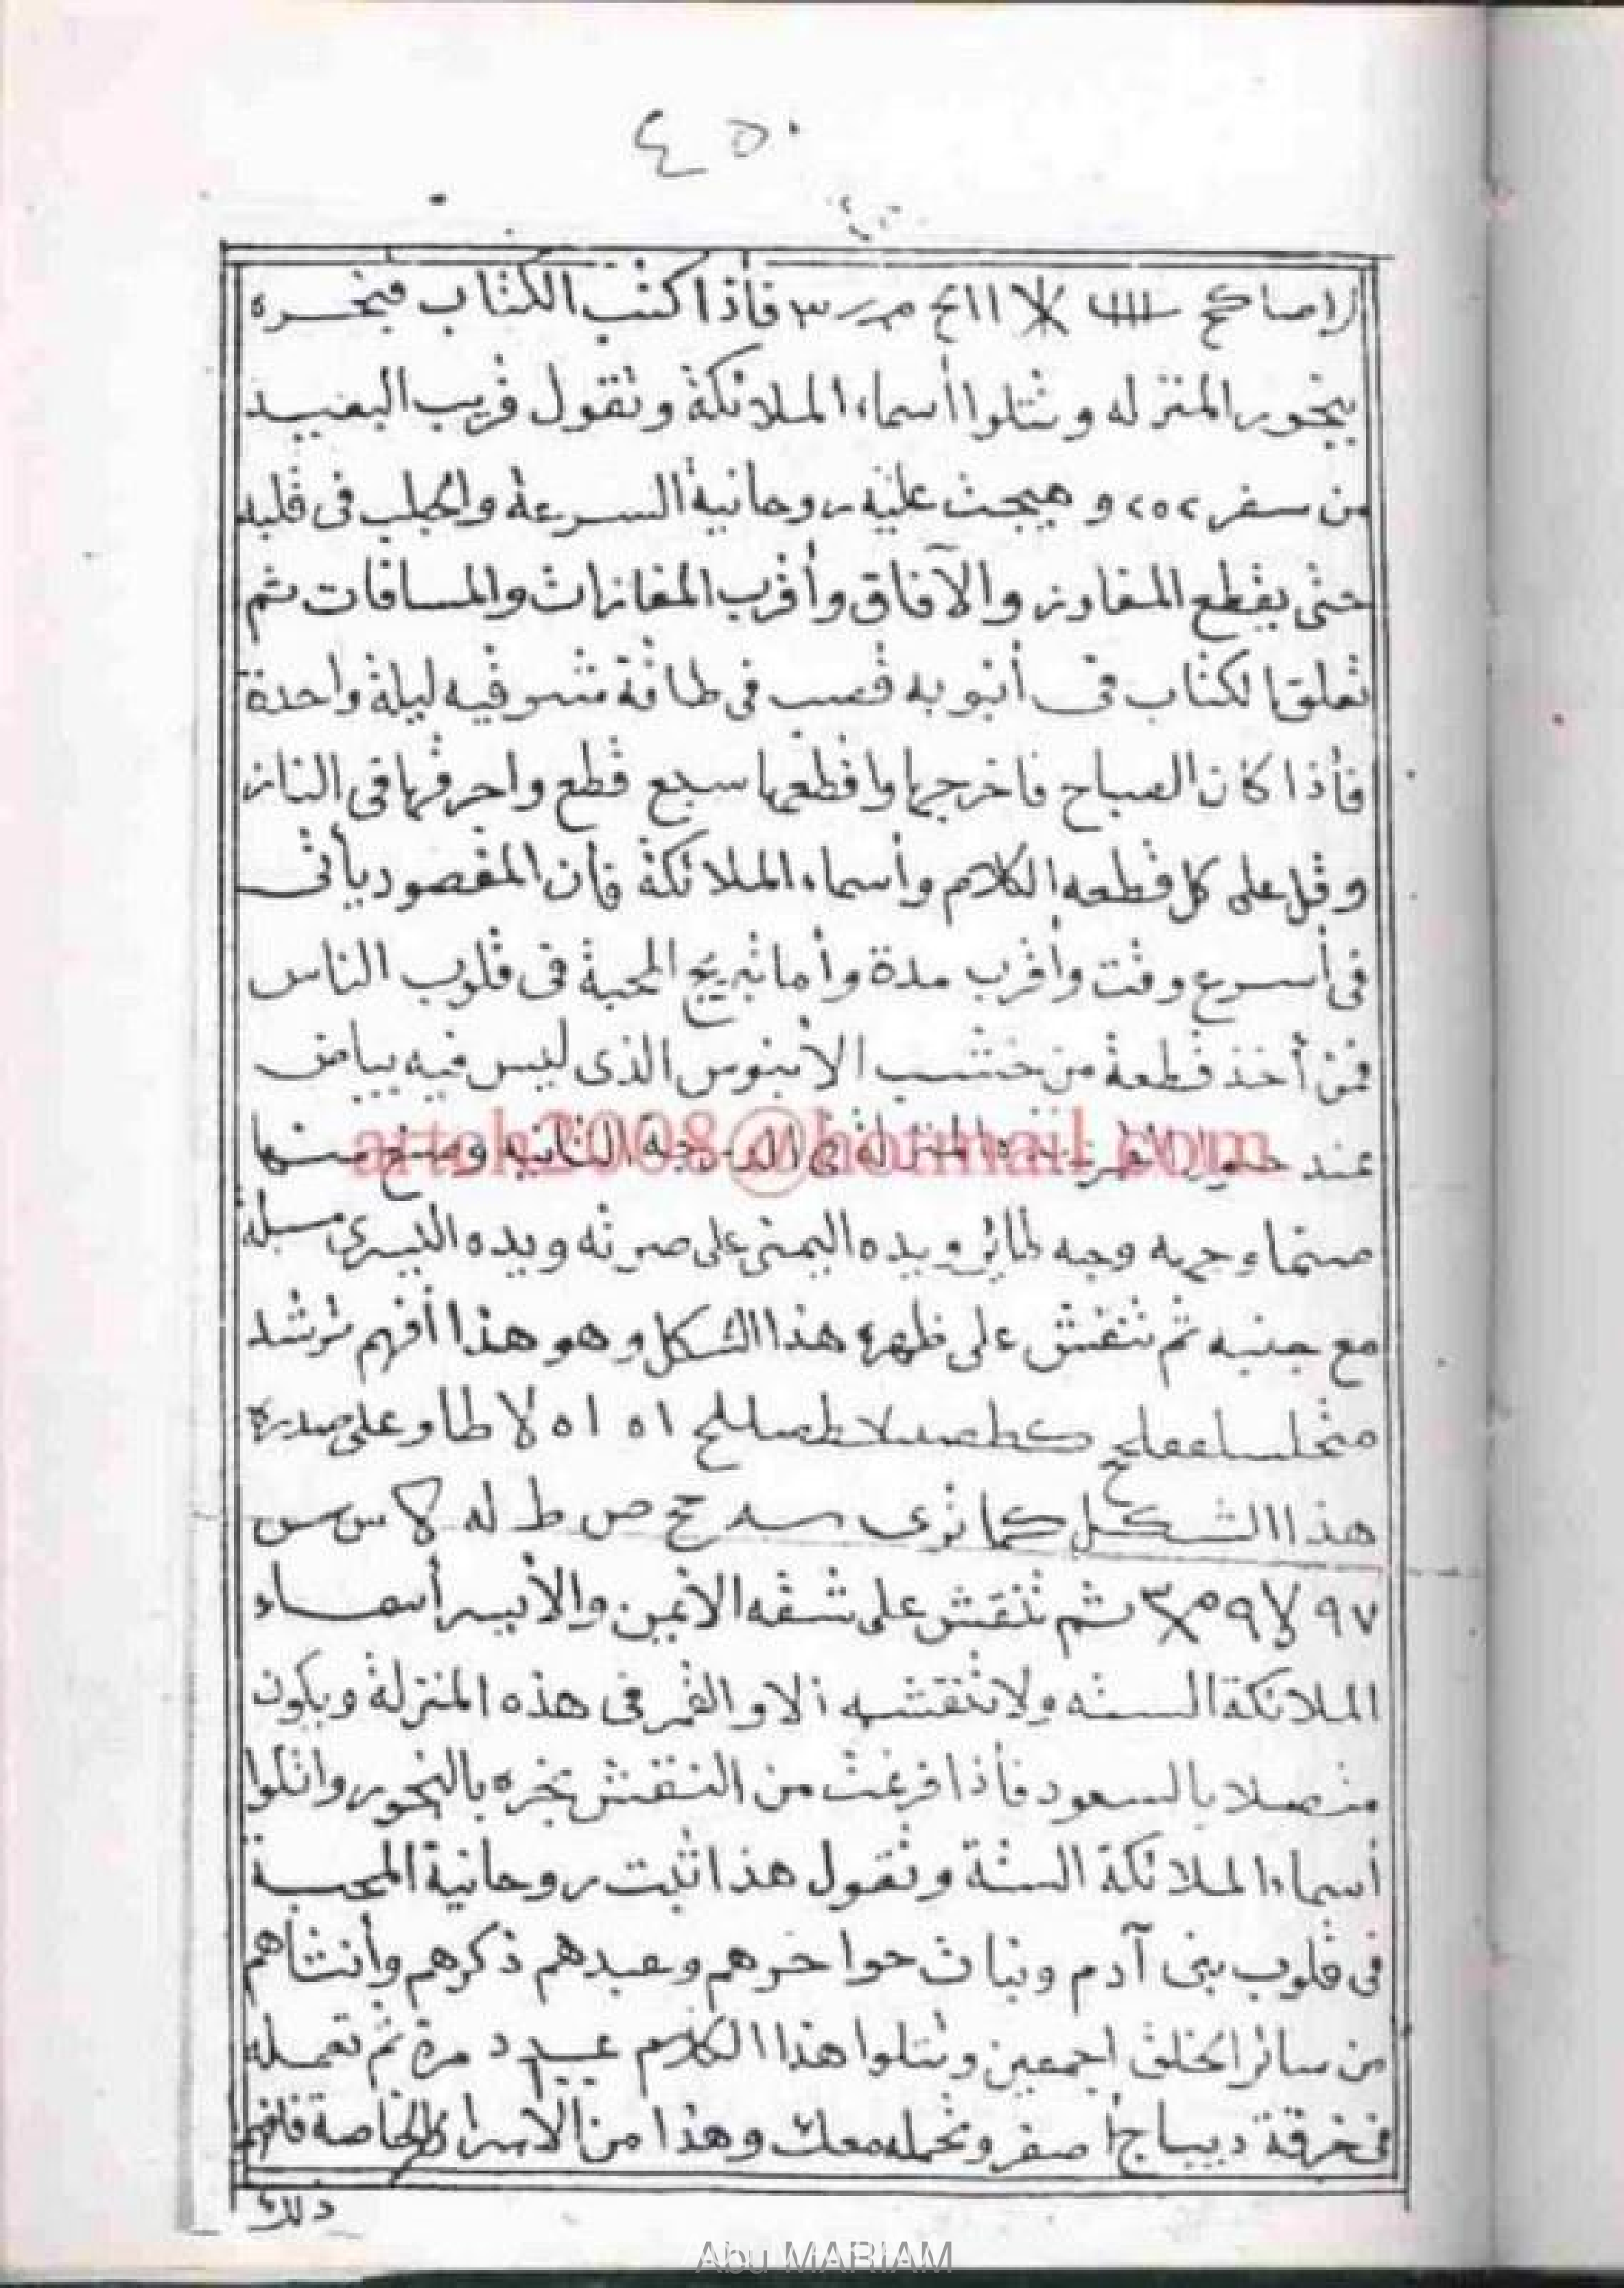 ٤٥٠
فأذا كتبت الكتاب فبخره
ببخور المنزله وتتلوا أسماء الملائكة وتقول قريب البعيد
من سفر ٢٥٢ و هيجت عليه روحانية السرعة والجلب فى قلبه
حتى يقطع المفاوز والآفاق وأقرب المفازات والمسافات ثم
تعلق الكتاب فى أنبوبه قصب فى طاقة شرقيه ليلة واحدة
فأذا كان الصباح فاخرجها واقطعها سبع قطع واحرقها فى النار
وقل على كل قطعه الكلام وأسماء الملائكة فان المقصود يأتى
فى أسرع وقت وأقرب مدة وأما تهييج المحبة فى قلوب الناس
فمن أخذ قطعة من خشب الأبنوس الذى ليس فيه بياض
عند
artch2008@hotmail.com
منها
صنما وجهه وجه طائر ويده اليمنى على صرته ويده اليسرى مسبلة
مع جنبه ثم تنقش على ظهره هذا الشكل وهو هذا أفهم ترشد
١٥ ١٥ لا طا و على صدره
هذا الشكل كما ترى سه حح ص ط له لا س س
٩٧ ثم تنقش على شقه الأيمن والأيسر أسماء
الملائكة الستة ولا تنقشه ألا والقمر فى هذه المنزلة ويكون
متصلا بالسعود فأذا فرغت من النقش بخره بالبخور واتلوا
أسماء الملائكة الستة وتقول هذا تثبت روحانية المحبة
فى قلوب بنى آدم وبنات حوا حرهم وعبدهم ذكرهم وأنثاهم
من سائر الخلق اجمعين وتتلوا هذا الكلام مرة ثم تعمله
فى خرقة ديباج أصفر وتحمله معك وهذا من الأسرار الخاصة فافهم
ذلك
Abu MARIAM